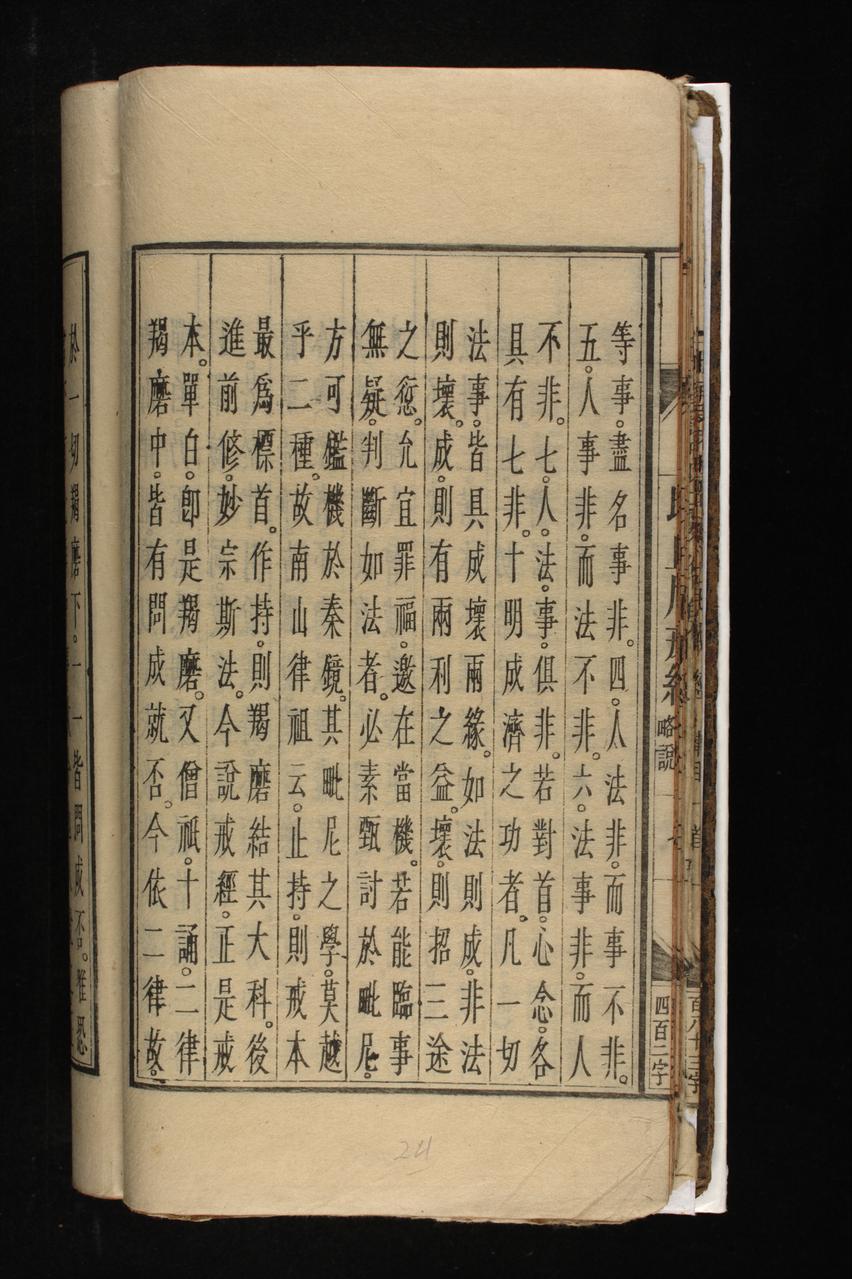 等事。盡名事非。四。人法非。而事不非。
五。人事非。而法不非。六。法事非。而人
不非。七。人。法。事。俱非。若對首。心念。各
具有七非。十明成濟之功者。凡一切
法事。皆具成壞兩緣。如法則成。非法
則壞。成。則有兩利之益。壞。則招三途
之愆。允宜罪福。邀在當機。若能臨事
無疑。判斷如法者。必素甄討於毗尼。
方可鑑機於秦鏡。其毗尼之學。莫越
乎二種。故南山律祖云。止持。則戒本
最為標首。作持。則羯磨結其大科。後
進前修。妙宗斯法。今說戒經。正是戒
本。單白。即是羯磨。又僧祇。十誦。二律
羯磨中。皆有問成就否。今依二律故。
略說
四百二字
於一切羯磨下。一一皆問成否。惟恐